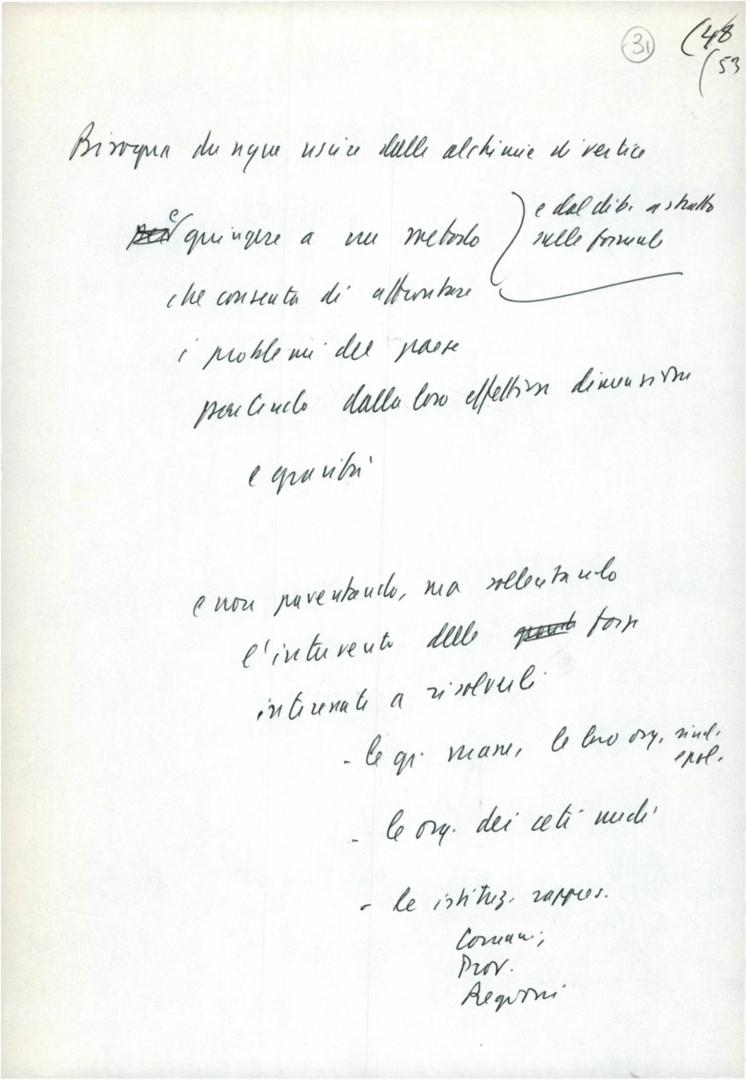 31
(48
(53
Bisogna dunque uscire dalle alchimie di vertice
e dal dib. astratto
sulle formule
e giungere a un metodo
che consenta di affrontare
i problemi del paese
partendo dalla loro effettiva dimensione
e gravità
e non paventando, ma sollecitando
l'intervento delle forze
interessate a risolverli
- le gr. masse, le loro org. sind.
e pol.
- le org. dei ceti medi
- le istituz. rappres.
Comuni,
Prov.
Regioni